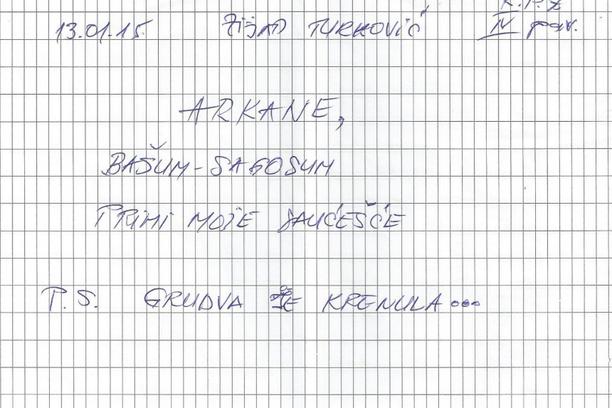 K.P.Z
13.01.15. ŽIJAD TURKOVIĆ IV pav.
ARKANE,
BAŠUM-SAGOSUM
PRIMI MOJE SAUĆEŠĆE
P.S. GRUDVA JE KRENULA...